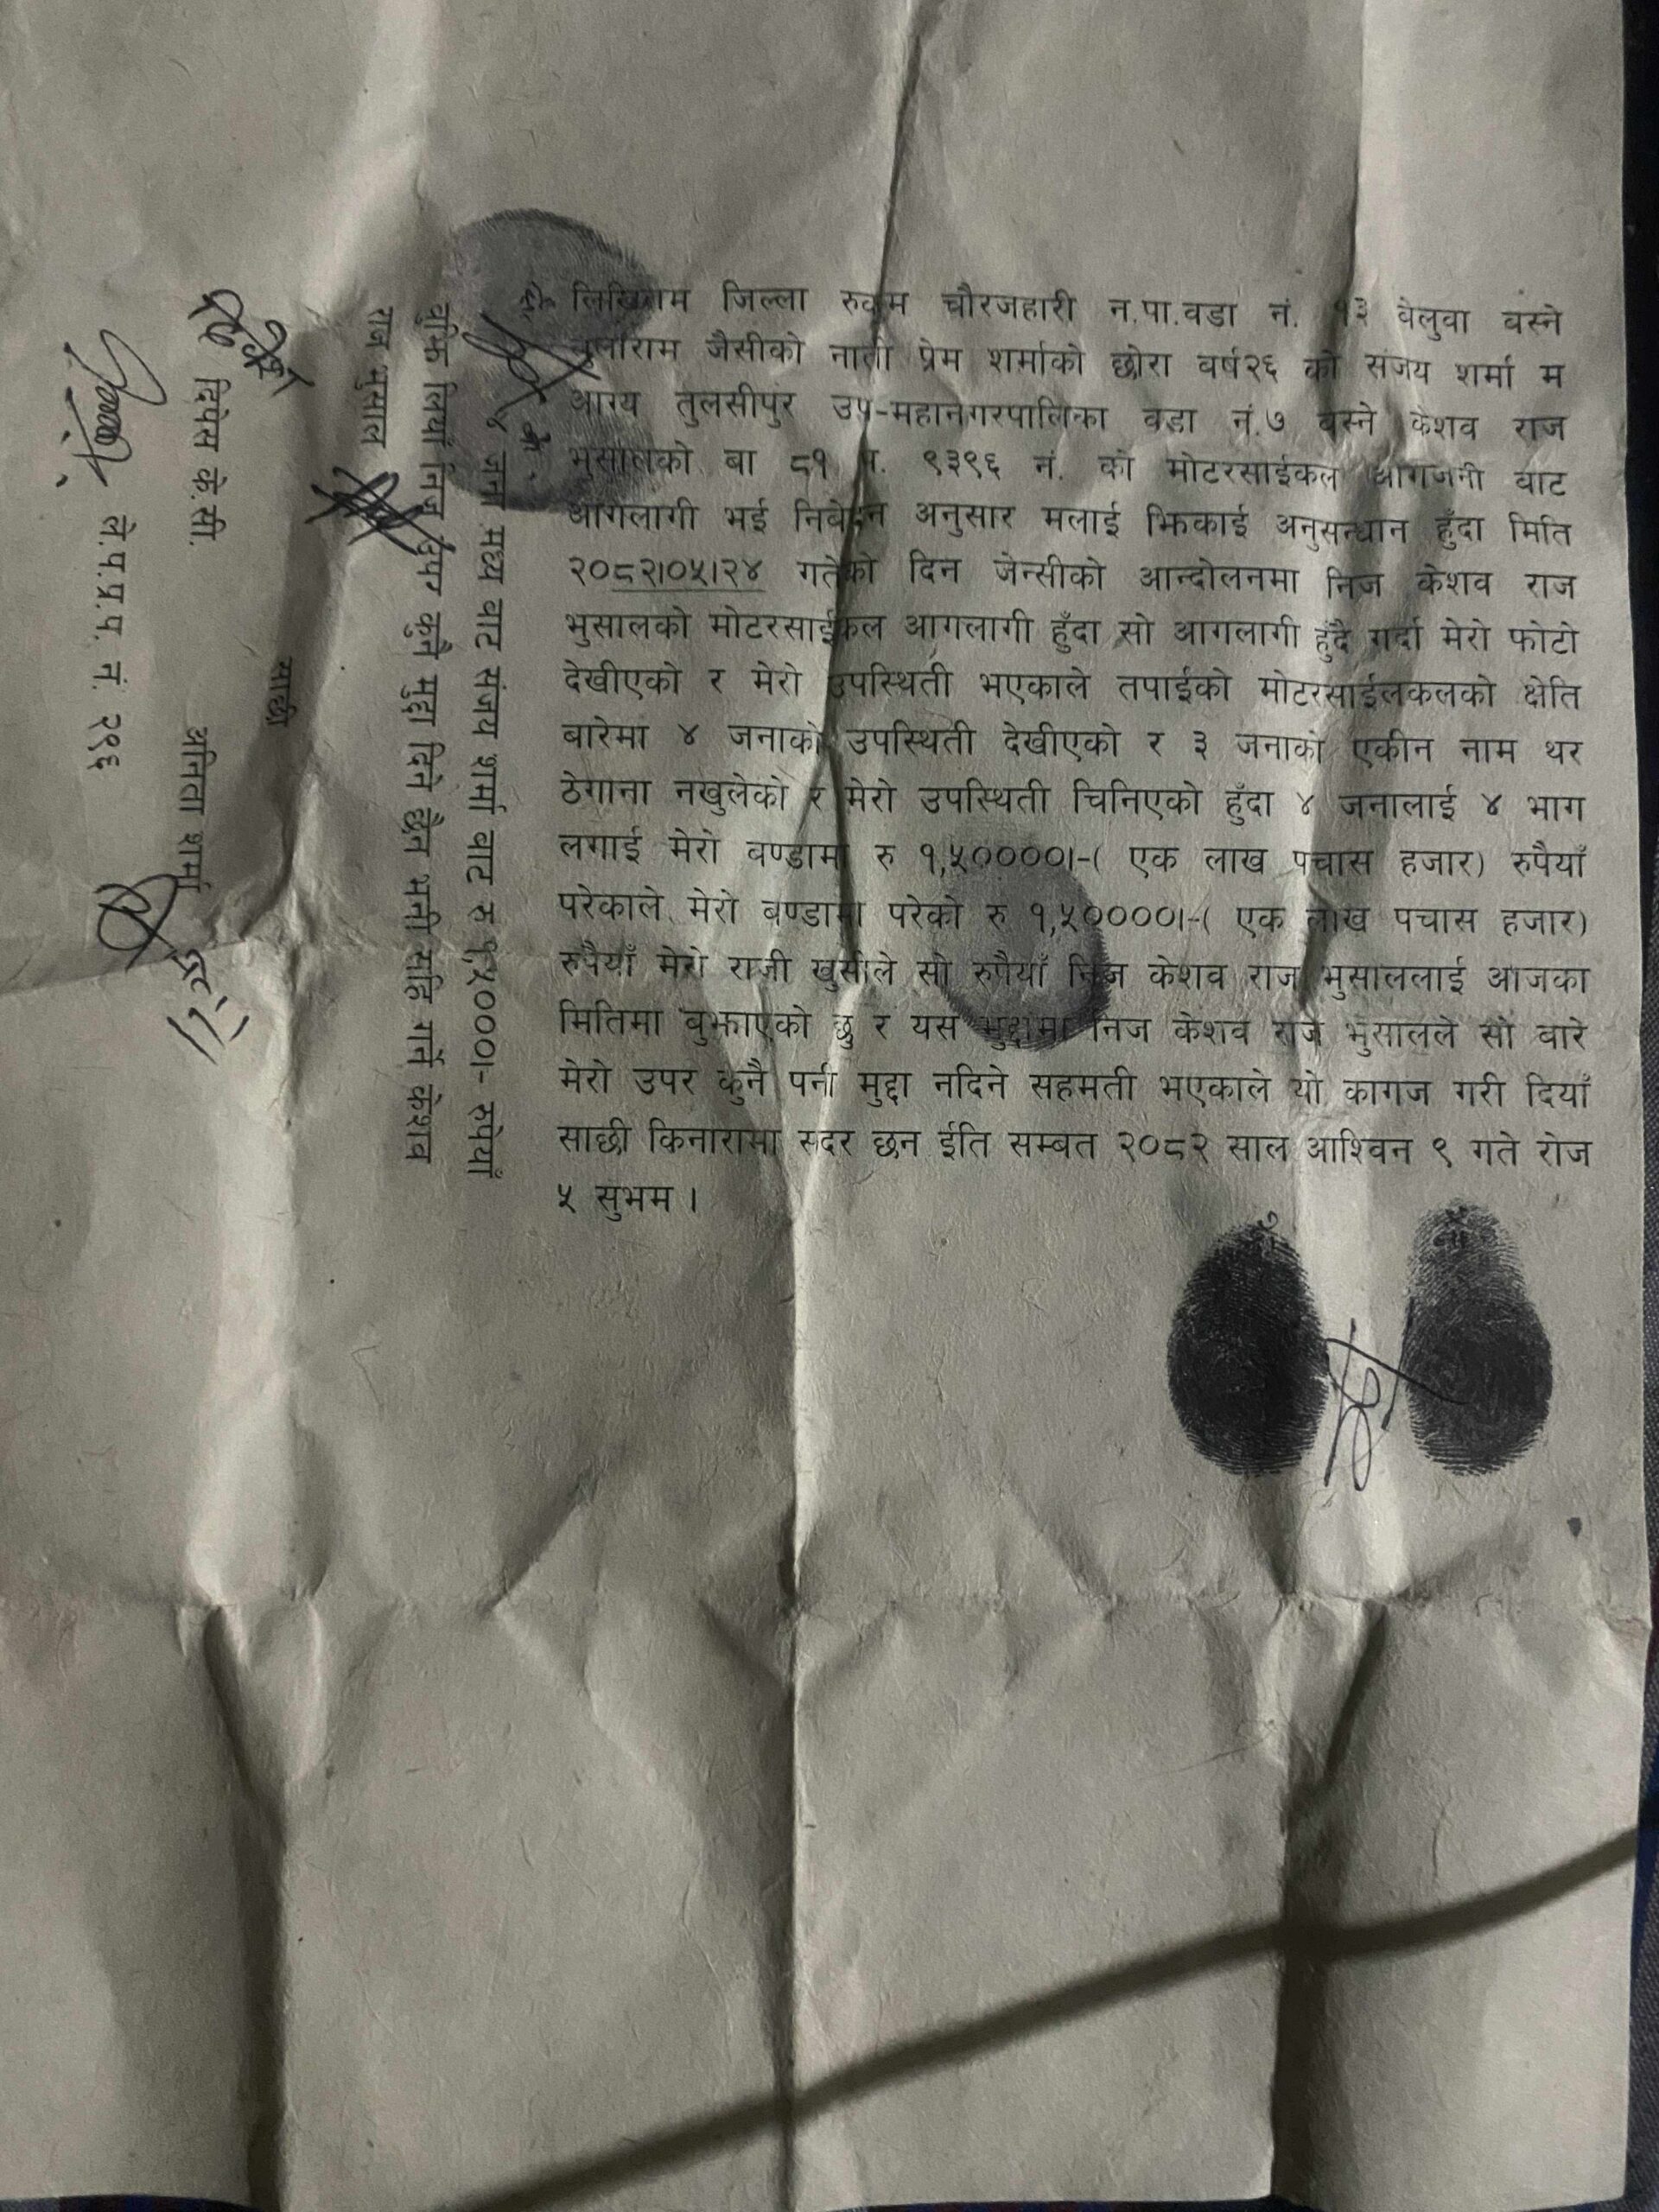 लिखितम जिल्ला रुकुम चौरजहारी न.पा.वडा नं. १३ वेलुवा बस्ने
जैसीको नाती प्रेम शर्माको छोरा वर्ष२६ को संजय शर्मा म
आग्य तुलसीपुर उप-महानगरपालिका वडा नं.७ बस्ने केशव राज
भुसालको बा ८१ प. ९३९६ नं. को मोटरसाईकल आगजनी वाट
आगलागी भई निबेदन अनुसार मलाई झिकाई अनुसन्धान हुँदा मिति
२०८२।०५।२४ गतेको दिन जेन्सीको आन्दोलनमा निज केशव राज
भुसालको मोटरसाईकल आगलागी हुँदा सो आगलागी हुँदै गर्दा मेरो फोटो
देखीएको र मेरो उपस्थिती भएकाले तपाईको मोटरसाईलकलको क्षेति
बारेमा ४ जनाको उपस्थिती देखीएको र ३ जनाको एकीन नाम थर
ठेगाना नखुलेको र मेरो उपस्थिती चिनिएको हुँदा ४ जनालाई ४ भाग
लगाई मेरो वण्डामा रु १,५००००।-( एक लाख पचास हजार) रुपैयाँ
परेकाले मेरो बण्डामा परेको रु १,५००००।-( एक लाख पचास हजार)
रुपैयाँ मेरो राजी खुसीले सो रुपैयाँ निज केशव राज भुसाललाई आजका
मितिमा बुझाएको छु र यस मुद्दामा निज केशव राज भुसालले सो बारे
मेरो उपर कुनै पनी मुद्दा नदिने सहमती भएकाले यो कागज गरी दियाँ
साछी किनारामा सदर छन ईति सम्बत २०८२ साल आश्विन ९ गते रोज
५ सुभम ।
४ जना मध्य वाट संजय शर्मा वाट रु १,५००००।- रुपैयां
बुझि लियां निज उपर कुनै मुद्दा दिने छैन भनी सहि गर्ने केशव
राज भुसाल
साछी
दिपेस के.सी.
अनिता शर्मा
ले.प.प्र.प. नं. २९६